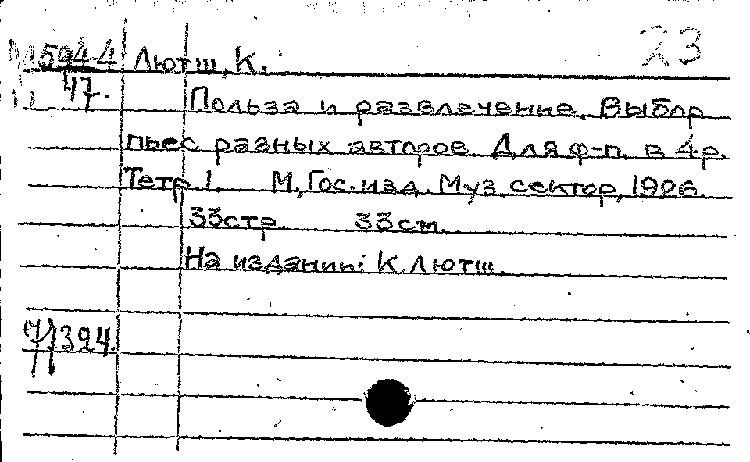 23
594-4 Лютш, К.
47.
Польза и развлечение. Выбор
пьес разных авторов. Для ф-п. в 4 р.
Тетр 1. М, Гос. изд. Муз. сектор, 1926
33 стр. 33 см.
На издании: К. Лютш.
394.